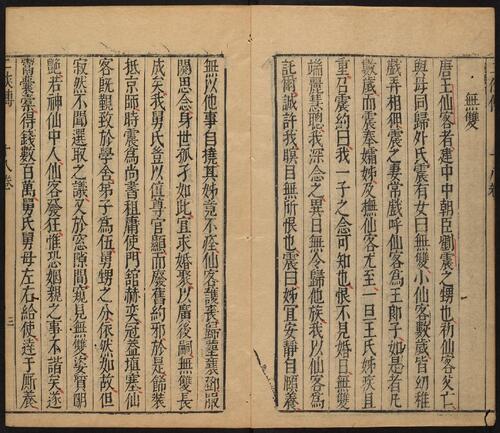 無雙
唐王仙客者建中中朝臣劉震之甥也初仙客父亡
與母同歸外氏震有女曰無雙小仙客數歲皆幼稚
戲弄相狎震之妻常戲呼仙客爲王郎子如是者凡
數歲而震奉孀姊及撫仙客尤至一旦王氏姊疾且
重召震約曰我一子念之可知也恨不見婚日無雙
端麗慧聰我深念之異日無令歸他族我以仙客爲
託爾誠許我瞑目無所恨也震曰姊宜安靜自頤養
無以他事自撓其姊竟不痊仙客護喪歸葬襄鄧服
闋思念身世孤孑如此宜求婚娶以廣後嗣無雙長
成矣我舅氏豈以位尊官顯而廢舊約邪於是飾裝
抵京師時震爲尚書租庸使門館赫奕冠蓋塡塞仙
客既覲致於學舍弟子爲伍舅甥之分依然如故但
寂然不聞選取之議又於窓隙間窺見無雙姿質明
艶若神仙中人仙客發狂惟恐姻親之事不諧矣遂
鬻囊橐得錢數百萬舅氏舅母左右給使達于厮養